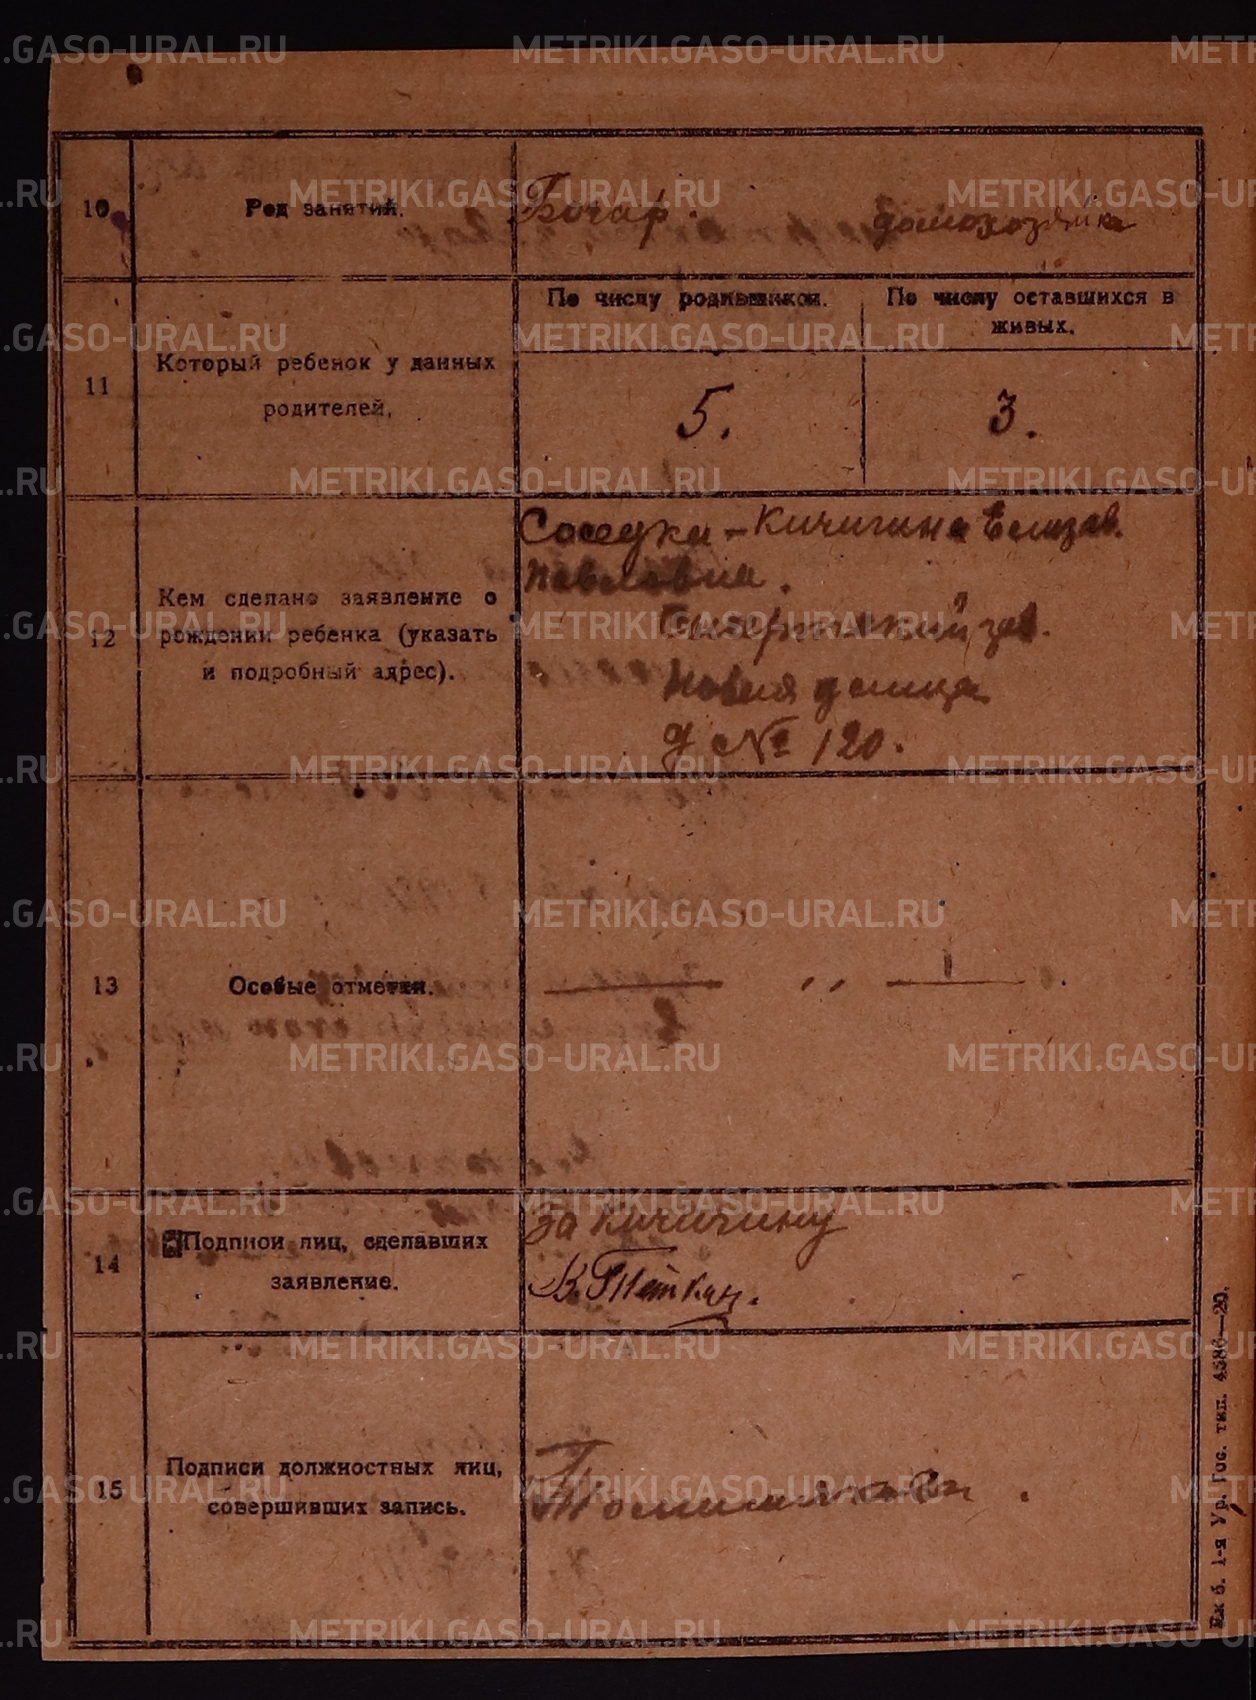 10
Род занятий.
Бочар.
домохозяйка
11
Который ребенок у данных
родителей.
По числу родившихся.
По числу оставшихся в
живых.
5.
3.
12
Кем сделано заявление о
рождении ребенка (указать
и подробный адрес).
Соседка - Кичигина Елизав.
Павловна.
Сысертский зав.
Новая улица
д № 120.
13
Особые отметки.
14
Подписи лиц, сделавших
заявление.
За Кичигину
15
Подписи должностных лиц,
совершивших запись.
Ек б. 1-я Ур. Гос. тип. 4586—20.
METRIKI.GASO-URAL.RU